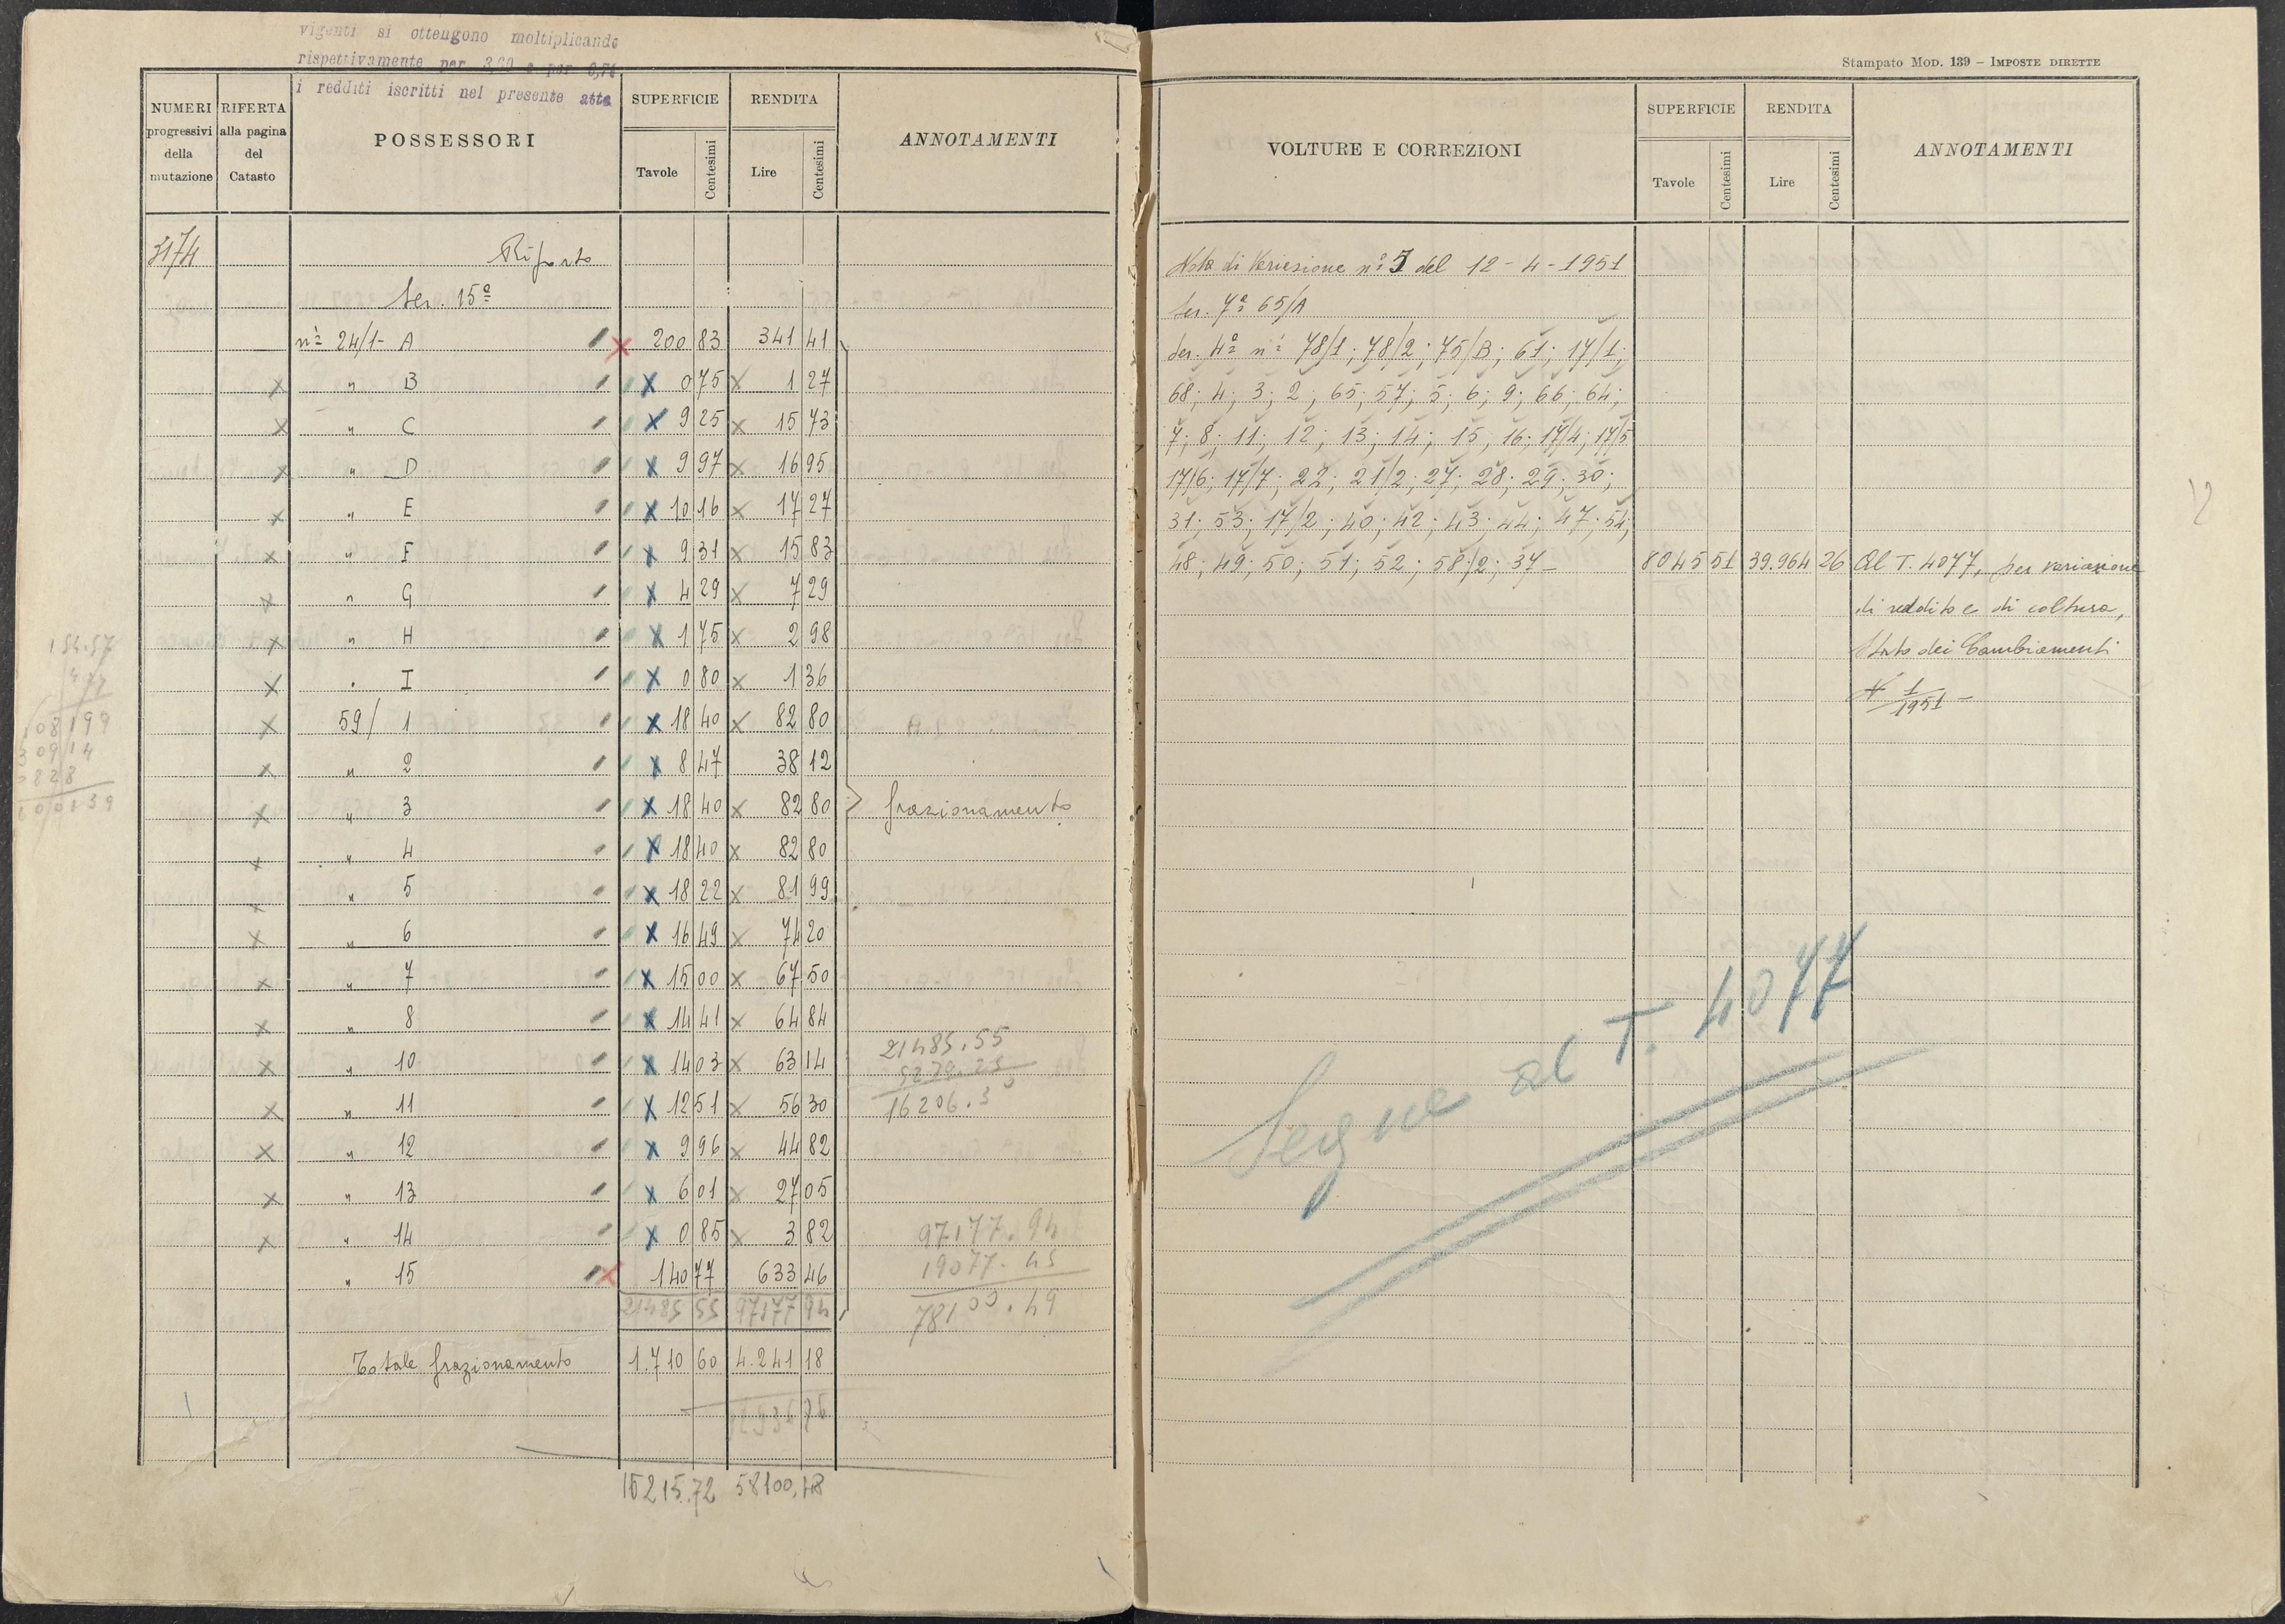 vigenti si ottengono moltiplicando
rispettivamente per 3,60 e per 0,74
i redditi iscritti nel presente atto
NUMERI progressivi della mutazione
RIFERTA alla pagina del Catasto
POSSESSORI
SUPERFICIE Tavole Centesimi
RENDITA Lire Centesimi
ANNOTAMENTI
3174 Riporto
Ser. 15ª
nº 24/1- A 200 83 341 41
" B 0 75 1 27
" C 9 25 15 73
" D 9 97 16 95
" E 10 16 17 27
" F 9 31 15 83
" G 4 29 7 29
" H 1 75 2 98
" I 0 80 1 36
59/ 1 18 40 82 80
" 2 8 47 38 12
" 3 18 40 82 80 frazionamento
" 4 18 40 82 80
" 5 18 22 81 99
" 6 16 49 74 20
" 7 15 00 67 50
" 8 14 41 64 84
" 10 14 03 63 14
" 11 12 51 56 30
" 12 9 96 44 82
" 13 6 01 27 05
" 14 0 85 3 82
" 15 140 77 633 46
21485 55 97177 94
Totale frazionamento 1.710 60 4.241 18
58100,48
21485.55
5279.25
16206.30
97177.94
19077.45
78100.49
Stampato MOD. 139 – IMPOSTE DIRETTE
VOLTURE E CORREZIONI
SUPERFICIE Tavole Centesimi
RENDITA Lire Centesimi
ANNOTAMENTI
Nota di Variazione nº 5 del 12-4-1951
Ser. 7ª 65/A
Ser. 4ª nº 78/1; 78/2; 75/B; 61; 17/1;
68; 4; 3; 2; 65; 57; 5; 6; 9; 66; 64;
7; 8; 11; 12; 13; 14; 15; 16; 17/4; 17/5
17/6; 17/7; 22; 21/2; 27; 28; 29; 30;
31; 53; 17/2; 40; 42; 43; 44; 47; 54;
48; 49; 50; 51; 52; 58/2; 37- 8045 51 39.964 26 Al T. 4077, per variazione
di reddito e di coltura,
Stato dei Cambiamenti
N 1/1951 -
Segue al T. 4077